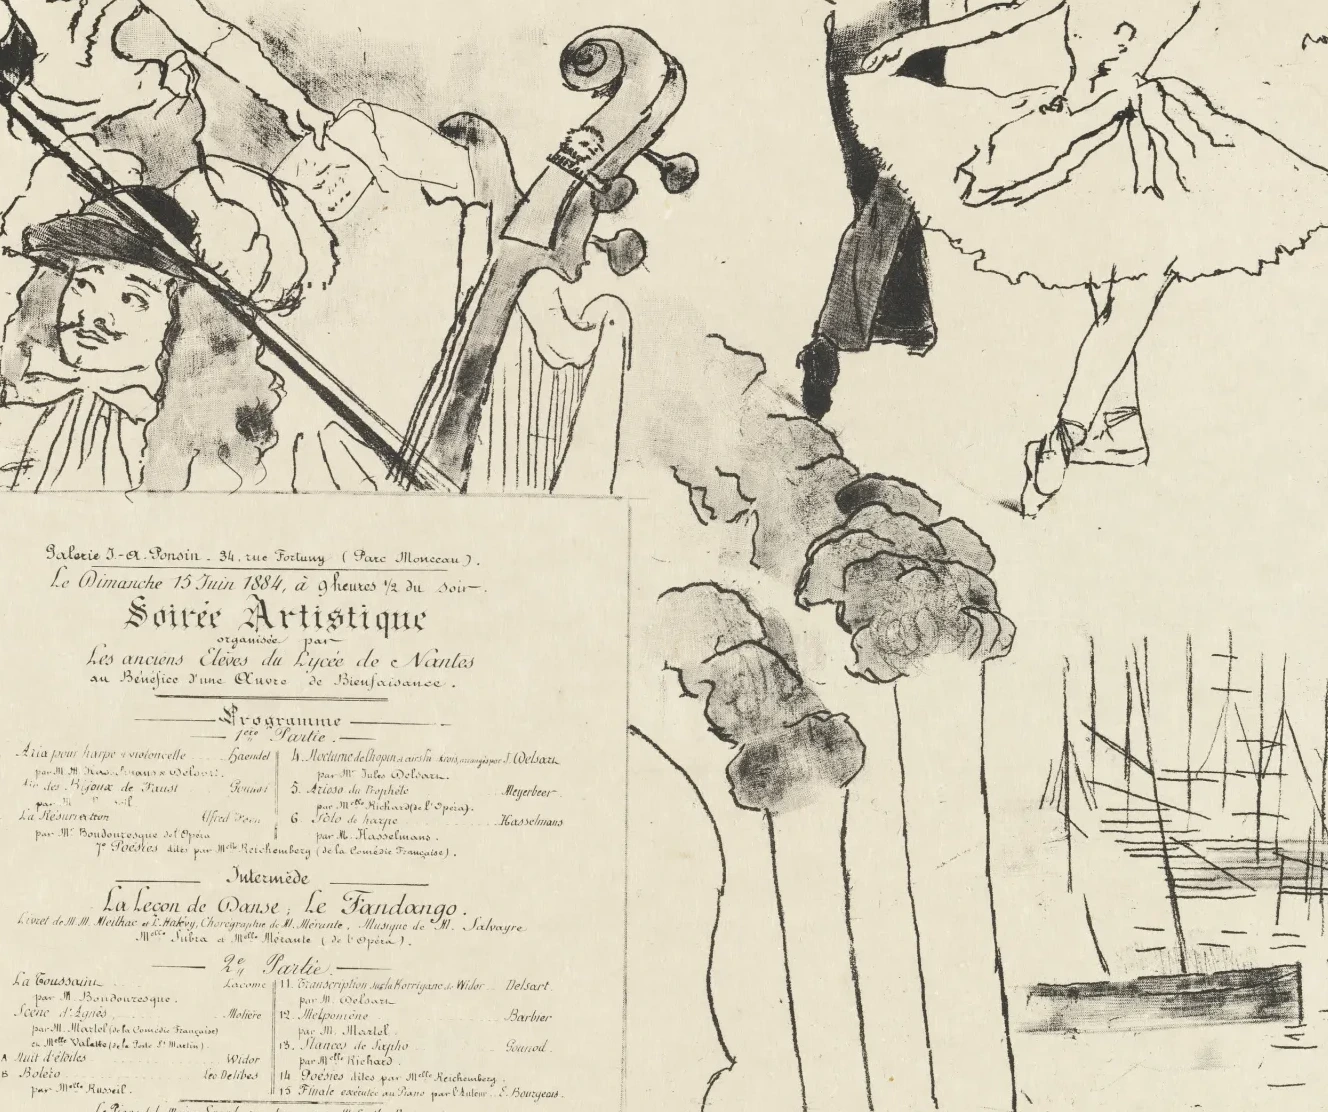 Galerie J.-A. Ponsin - 34, rue Fortuny ( Parc Monceau ).
Le Dimanche 15 Juin 1884, à 9 heures ½ du soir.
Soirée Artistique
organisée par
Les anciens Elèves du Lycée de Nantes
au Bénéfice d'une Œuvre de Bienfaisance.
Programme
1ère Partie.
Aria pour harpe & violoncelle Haendel
par M.M. Hasselmans & Delsart.
des Bijoux de Faust Gounod
par M
La Résurrection Alfred
par Mr. Boudouresque de l'Opéra
4. Nocturne de Chopin arrangés par J. Delsart
par Mr. Jules Delsart.
5. Arioso du Prophète Meyerbeer.
par Melle Richard (de l'Opéra).
6. Solo de harpe Hasselmans
par M. Hasselmans.
7e Poésies dites par Melle Reichemberg (de la Comédie Française).
Intermède
La Leçon de Danse ; Le Fandango.
Livret de M.M. Meilhac et L. Halévy, Chorégraphie de M. Mérante, Musique de M. Salvayre
Melle Subra et Melle Mérante ( de l'Opéra ).
2e Partie.
La Toussaint Lacome
par M. Boudouresque.
Scène d'Agnès Molière
par M. Martel (de la Comédie Française)
et Melle Valette (de la Porte St Martin).
A Nuit d'étoiles Widor
B Boléro Léo Delibes
par Melle Russeil.
11. Transcription sur la Korrigane de Widor Delsart
par M. Delsart
12. Melpomène Barbier
par M. Martel
13. Stances de Sapho Gounod.
par Melle Richard.
14 Poésies dites par Melle Reichemberg.
15 Finale exécutée au Piano par l'Auteur E. Bourgeois.